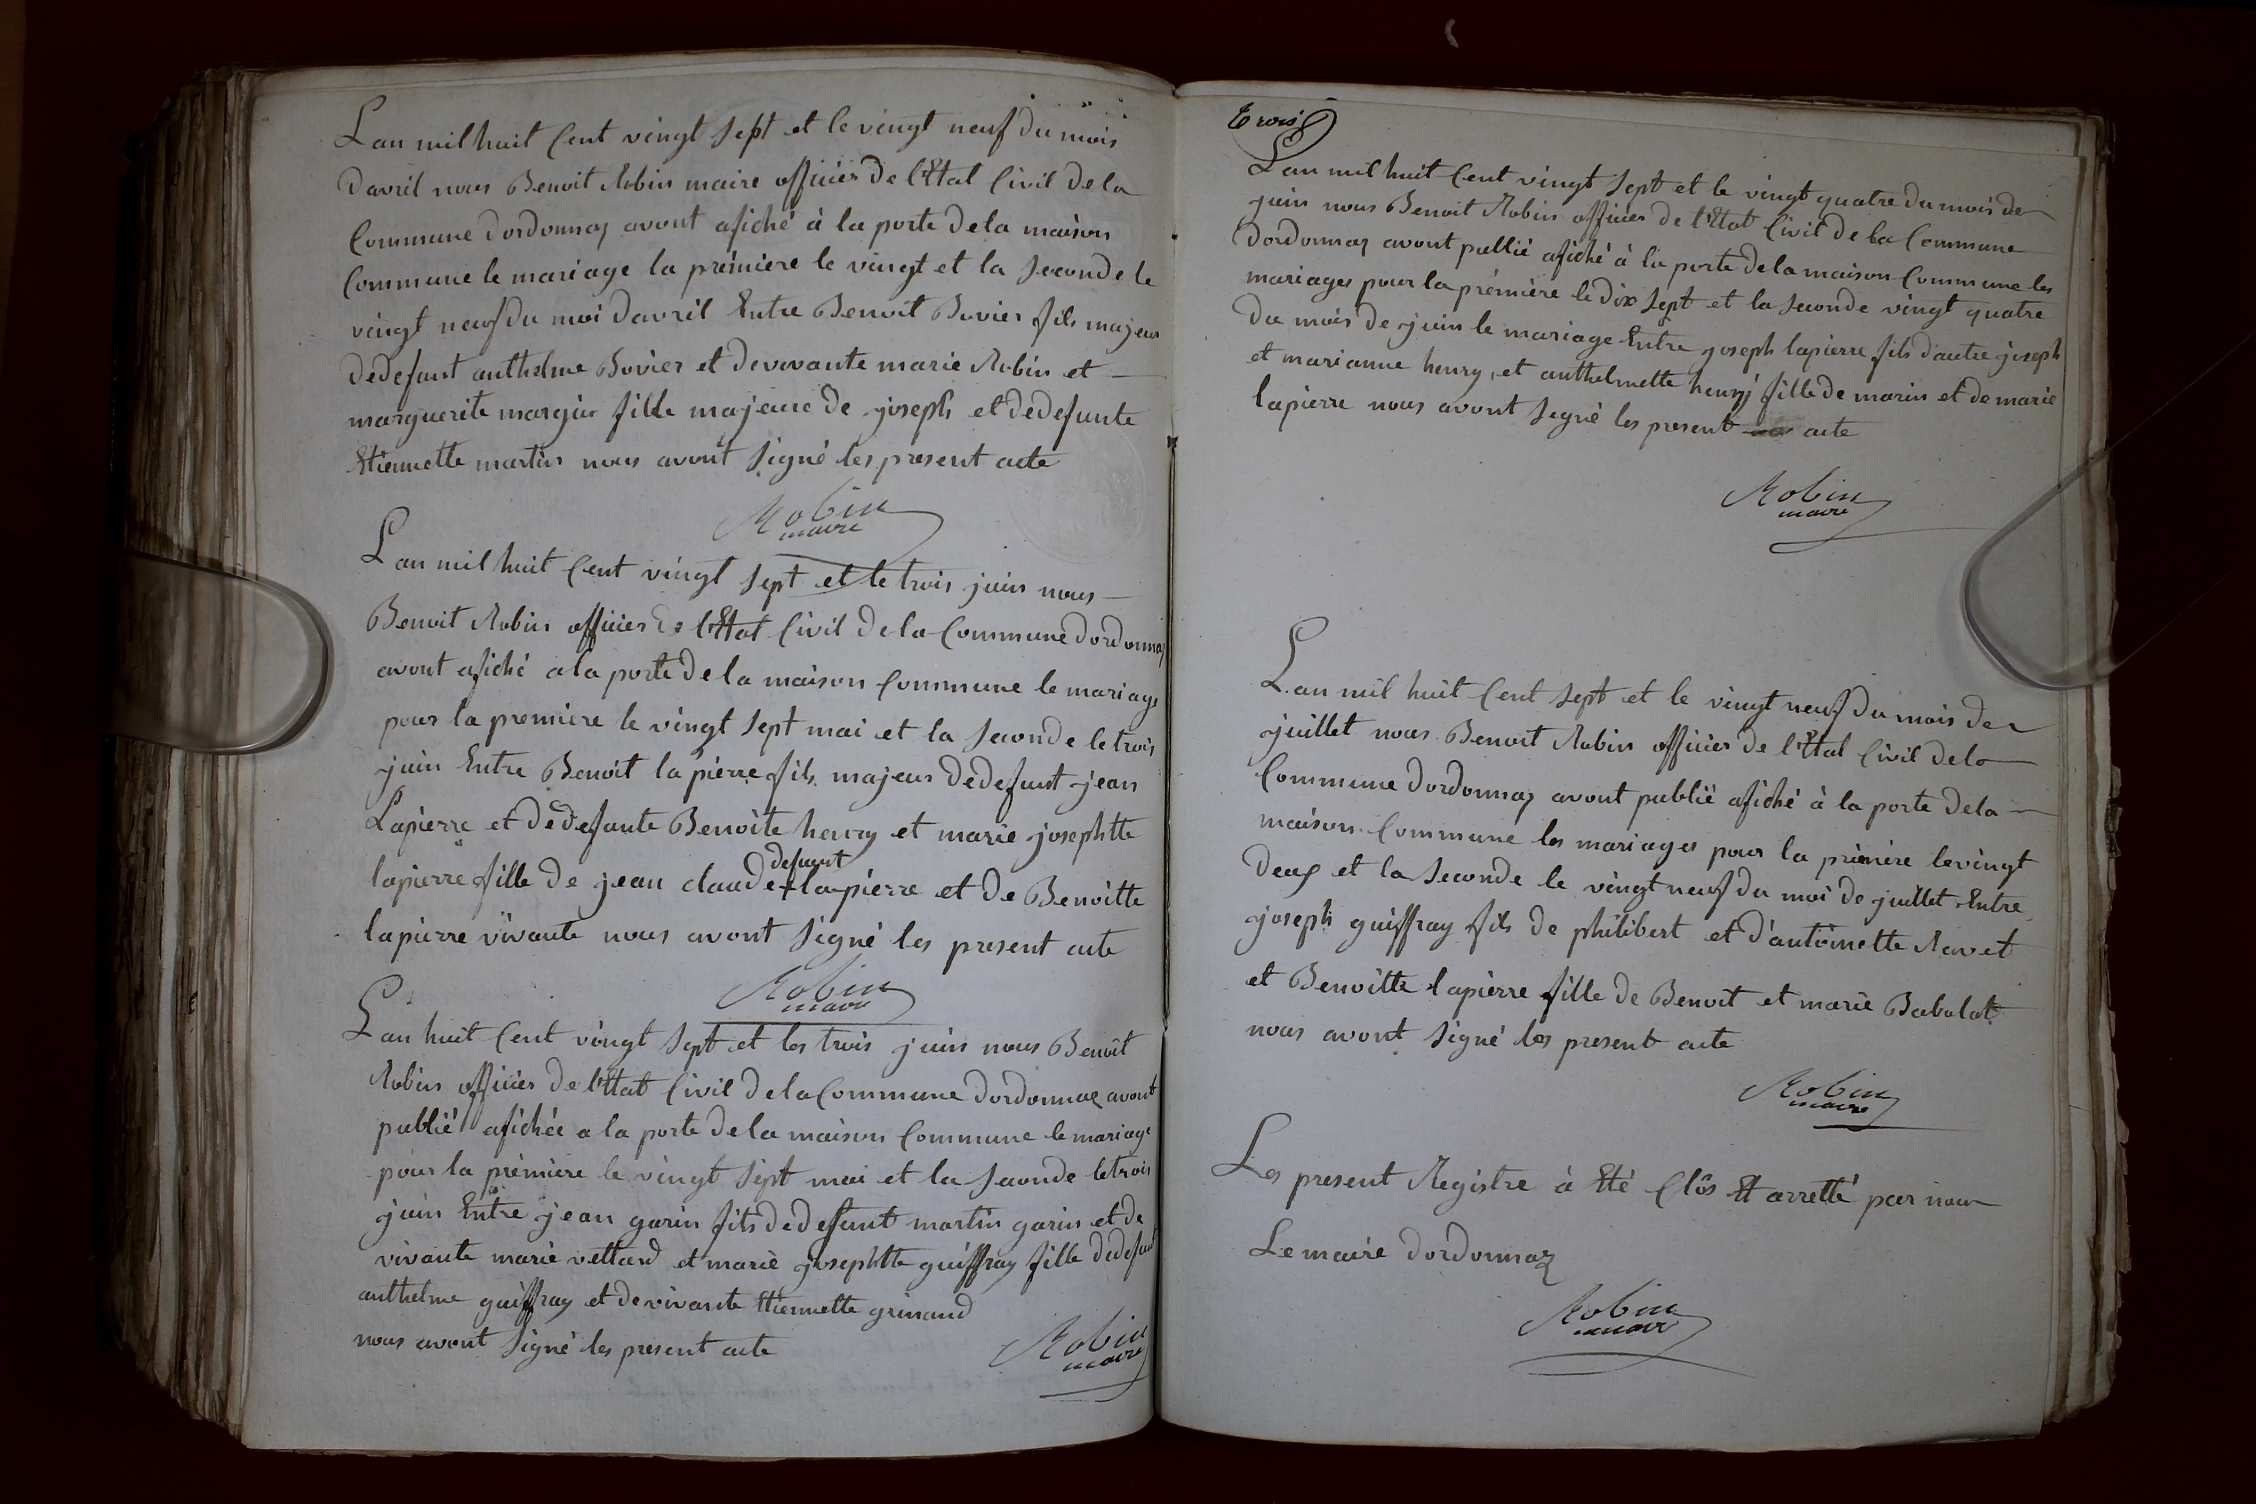 Lan mil huit Cent vingt sept et le vingt neuf du mois
davril nous Benoit Robin maire officier de l'Etat Civil de la
Commune dordonnaz avont afiché à la porte de la maison
Commune le mariage la première le vingt et la seconde le
vingt neuf du moi davril Entre Benoit Bovier fils majeur
de defunt anthelme Bovier et de vivante marie Robin et
marguerite margin fille majeure de joseph et de defunte
Etiennette martin nous avont signé les present acte
Robin
maire
Lan mil huit Cent vingt sept et le trois juin nous
Benoit Robin officier de l'Etat Civil de la Commune dordonnaz
avont afiché a la porte de la maison Commune le mariage
pour la premiere le vingt sept mai et la seconde le trois
juin Entre Benoit la pierre fils majeur de defunt jean
Lapierre et de defunte Benoite henry et marie josephtte
defunt
lapierre fille de jean claude + lapierre et de Benoitte
lapierre vivante nous avont signé les present acte
Robin
maire
Lan huit Cent vingt sept et les trois juin nous Benoit
Robin officier de l'Etat Civil de la Commune dordonnaz avont
publié afichée a la porte de la maison Commune le mariage
pour la première le vingt sept mai et la seconde le trois
juin Entre jean garin fils de defunt martin garin et de
vivante marie vettard et marie josephtte guiffray fille de defunt
anthelme guiffray et de vivante Etiennette grinand
nous avont signé les present acte
Robin
maire
Trois
Lan mil huit Cent vingt sept et le vingt quatre du mois de
juin nous Benoit Robin officier de l'Etat Civil de la Commune
dordonnaz avont publié afiché à la porte de la maison Commune les
mariages pour la première le dix sept et la seconde vingt quatre
du mois de juin le mariage Entre joseph lapierre fils dautre joseph
et marianne henry, et anthelmette henry fille de marin et de marie
lapierre nous avont signé les present acte
Robin
maire
Lan mil huit Cent sept et le vingt neuf du mois de
juillet nous Benoit Robin officier de l'Etat Civil de la
Commune dordonnaz avont publié afiché à la porte de la
maison Commune les mariages pour la première le vingt
deux et la seconde le vingt neuf du moi de juillet Entre
joseph guiffray fils de philibert et d'antoinette Ravet
et Benoitte lapierre fille de Benoit et marie Babolat
nous avont signé les present acte
Robin
maire
Les present Registre à Eté Clôs Et arretté par nous
Le maire dordonnaz
Robin
maire